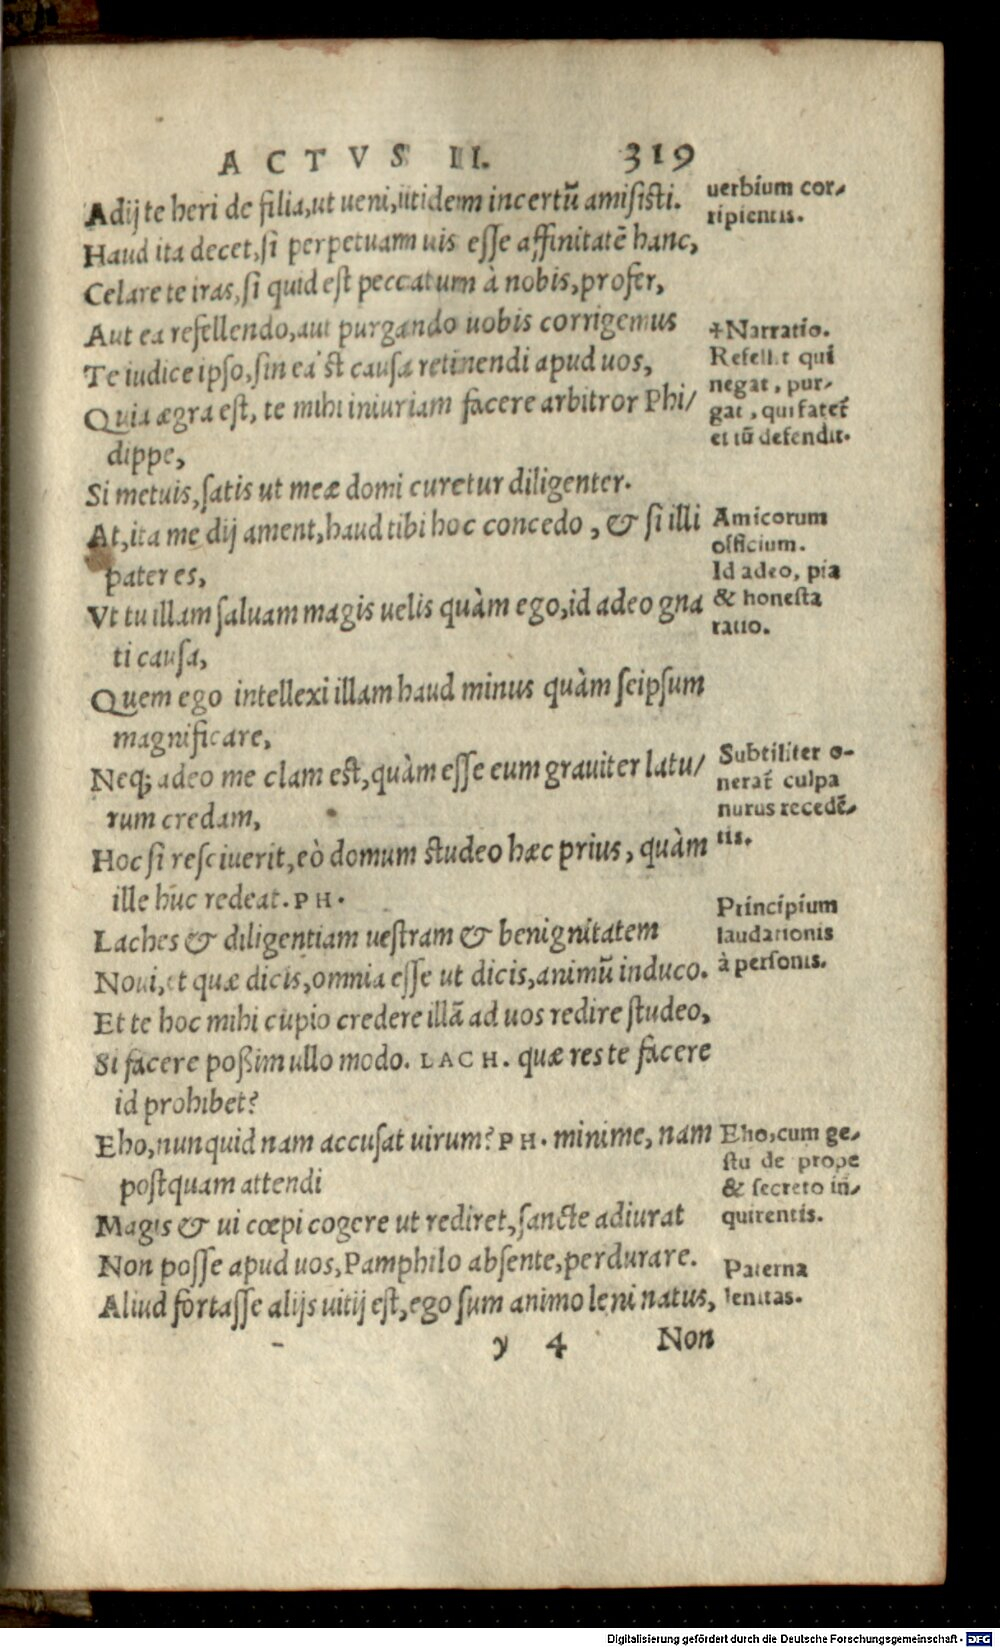 ACTVS II. 319
Adij te heri de filia, ut ueni, itidem incertũ amisisti.
Haud ita decet, si perpetuam uis esse affinitatẽ hanc,
Celare te iras, si quid est peccatum à nobis, profer,
Aut ea refellendo, aut purgando uobis corrigemus
Te iudice ipso, sin ea'st causa retinendi apud uos,
Quia ægra est, te mihi iniuriam facere arbitror Phi/
dippe,
Si metuis, satis ut meæ domi curetur diligenter.
At, ita me dij ament, haud tibi hoc concedo, & si illi
pater es,
Vt tu illam saluam magis uelis quàm ego, id adeo gna
ti causa,
Quem ego intellexi illam haud minus quàm seipsum
magnificare,
Neq; adeo me clam est, quàm esse eum grauiter latu/
rum credam,
Hoc si resciuerit, eò domum studeo hæc prius, quàm
ille huc redeat. PH.
Laches & diligentiam uestram & benignitatem
Noui, et quæ dicis, omnia esse ut dicis, animũ induco.
Et te hoc mihi cupio credere illã ad uos redire studeo,
Si facere poßim ullo modo. LACH. quæ res te facere
id prohibet?
Eho, nunquid nam accusat uirum? PH. minime, nam
postquam attendi
Magis & ui cœpi cogere ut rediret, sancte adiurat
Non posse apud uos, Pamphilo absente, perdurare.
Aliud fortasse alijs uitij est, ego sum animo leni natus,
y 4 Non
uerbium cor-
ripientis.
+Narratio.
Refellit qui
negat, pur-
gat, qui fatet̃
et tũ defendit.
Amicorum
officium.
Id adeo, pia
& honesta
ratio.
Subtiliter o-
nerat̃ culpa
nurus recedẽ-
tis.
Principium
laudationis
à personis.
Eho, cum ge-
stu de prope
& secreto in-
quirentis.
Paterna
lenitas.
Digitalisierung gefördert durch die Deutsche Forschungsgemeinschaft - DFG